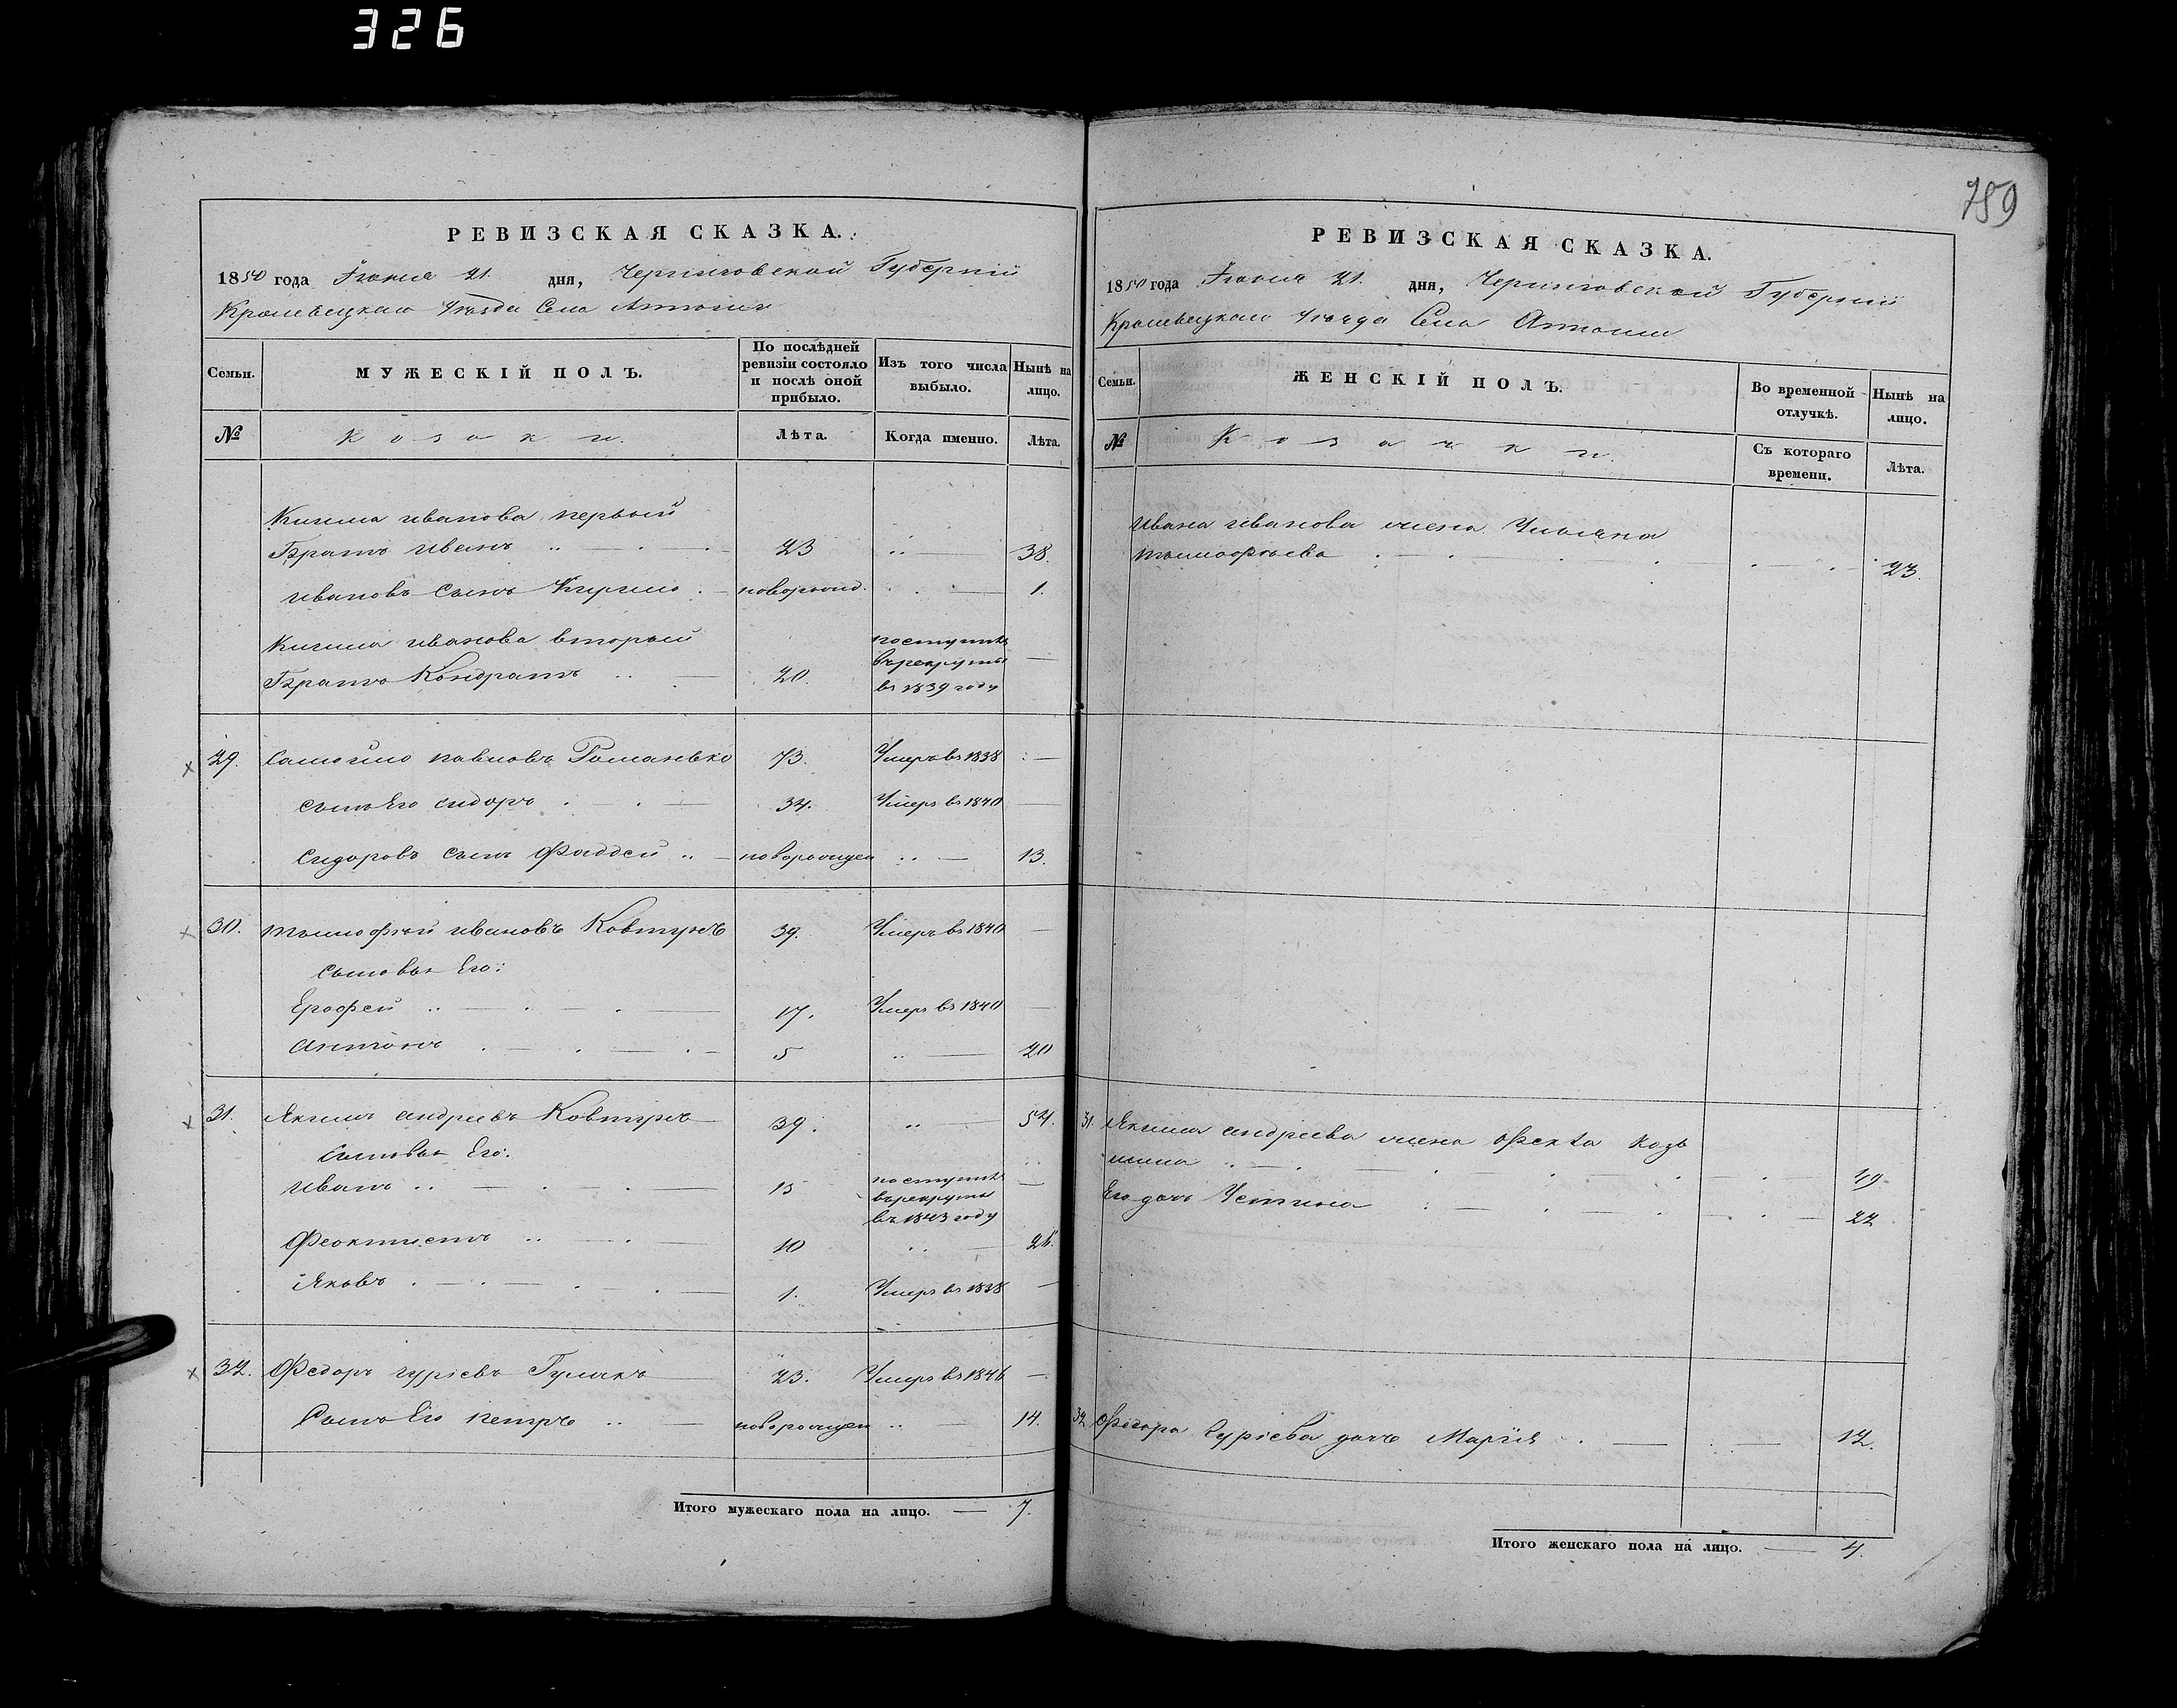 326
759
РЕВИЗСКАЯ СКАЗКА.
1850 года Іюня 21. дня, Черниговской Губерніи
Кролевецкаго Уѣзда Села
Семьи.
МУЖЕСКІЙ ПОЛЪ.
По послѣдней ревизіи состояло и послѣ оной прибыло.
Изъ того числа выбыло.
Нынѣ на лицо.
№
Козаки.
Лѣта.
Когда именно.
Лѣта.
иванова первый
Братъ иванъ 23 38.
ивановъ Сынъ Кирило новорожд. 1.
иванова вторый
Братъ Кондратъ 20. поступилъ в рекруты въ 1839 году
29. Самойло павловъ Романько 73. Умеръ въ 1838
сынъ Его сидоръ 34. Умеръ въ 1840
Сидоровъ сынъ Фаддей новорожден 13.
30. тимофѣй ивановъ Ковтунъ 39. Умеръ въ 1840
сыновья Его:
Ерофей 17. Умеръ въ 1840
антонъ 5 20
31. Якимъ андреевъ Ковтунъ 39. 54.
сыновья Его:
иванъ 15 поступилъ в рекруты въ 1843 году
Феоктистъ 10 26.
Яковъ 1. Умеръ въ 1838
32. Федоръ гуріевъ Гулакъ 23. Умеръ въ 1846
Сынъ Его петръ новорожден 14.
Итого мужескаго пола на лицо. — 7.
РЕВИЗСКАЯ СКАЗКА.
1850 года Іюня 21. дня, Черниговской Губерніи
Кролевецкаго Уѣзда Села
Семьи.
ЖЕНСКІЙ ПОЛЪ.
Во временной отлучкѣ.
Нынѣ на лицо.
№
Козачки.
Съ котораго времени.
Лѣта.
Ивана иванова жена Ульяна
тимофѣева 23.
31. Якима андреева жена Фекла козь
мина 49
Его дочь Устина 22
32. Федора Гуріева дочь Марія 12.
Итого женскаго пола на лицо. — 4.